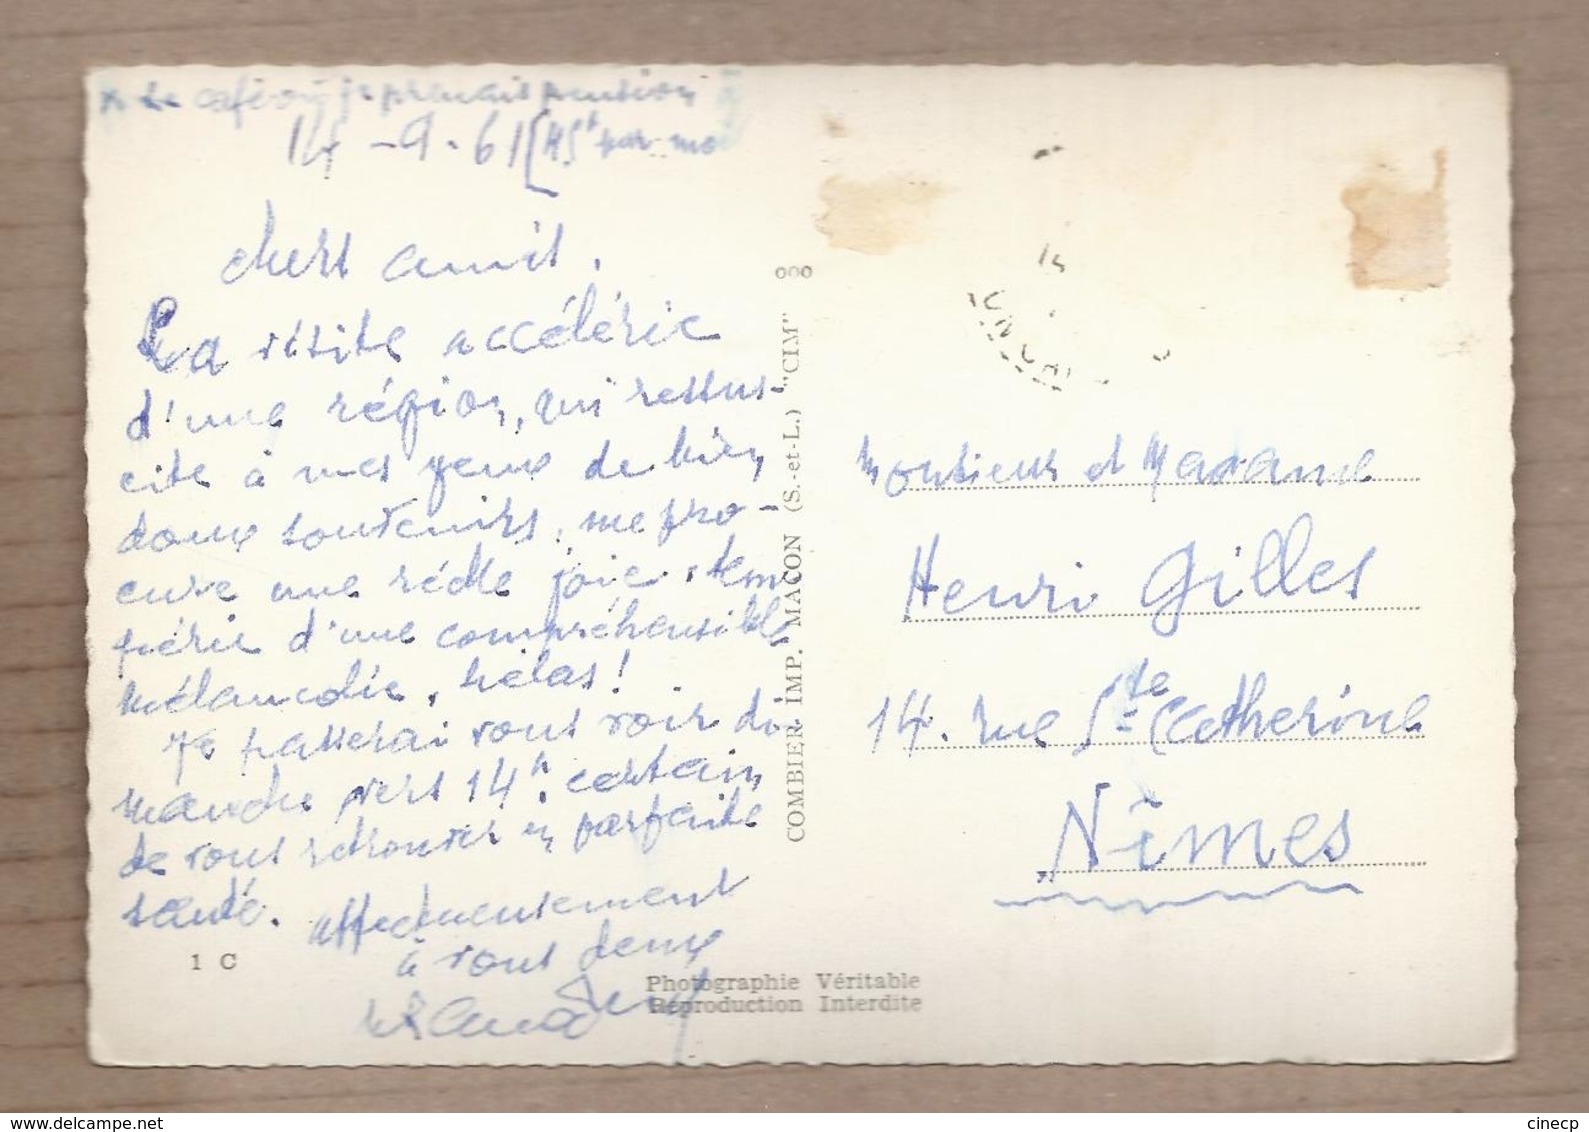 x Le café où je prenais pension
14-9-61 [45 f par mois
Chers amis.
La visite accélérée
d'une région, qui ressus-
cite à mes yeux de bien
doux souvenirs, me pro-
cure une réelle joie, tem
pérée d'une compréhensible
mélancolie, hélas!
Je passerai vous voir di
manche vers 14h. certain
de vous retrouver en parfaite
santé.
affectueusement
à vous deux
1 C
ooo
COMBIER IMP. MACON (S.-et-L.) "CIM"
Photographie Véritable
Reproduction Interdite
14
Monsieur et Madame
Henri Gilles
14. rue Ste Catherine
Nîmes
cinecp